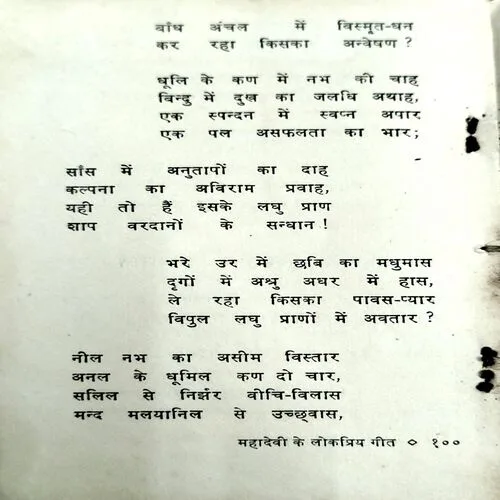 बाँध अंचल में विस्मृत-धन
कर रहा किसका अन्वेषण ?
धूलि के कण में नभ की चाह
बिन्दु में दुख का जलधि अथाह,
एक स्पन्दन में स्वप्न अपार
एक पल असफलता का भार;
साँस में अनुतापों का दाह
कल्पना का अविराम प्रवाह,
यही तो हैं इसके लघु प्राण
शाप वरदानों के सन्धान !
भरे उर में छबि का मधुमास
दृगों में अश्रु अधर में हास,
ले रहा किसका पावस-प्यार
विपुल लघु प्राणों में अवतार ?
नील नभ का असीम विस्तार
अनल के धूमिल कण दो चार,
सलिल से निर्झर वीचि-विलास
मन्द मलयानिल से उच्छ्वास,
महादेवी के लोकप्रिय गीत ◇ १००